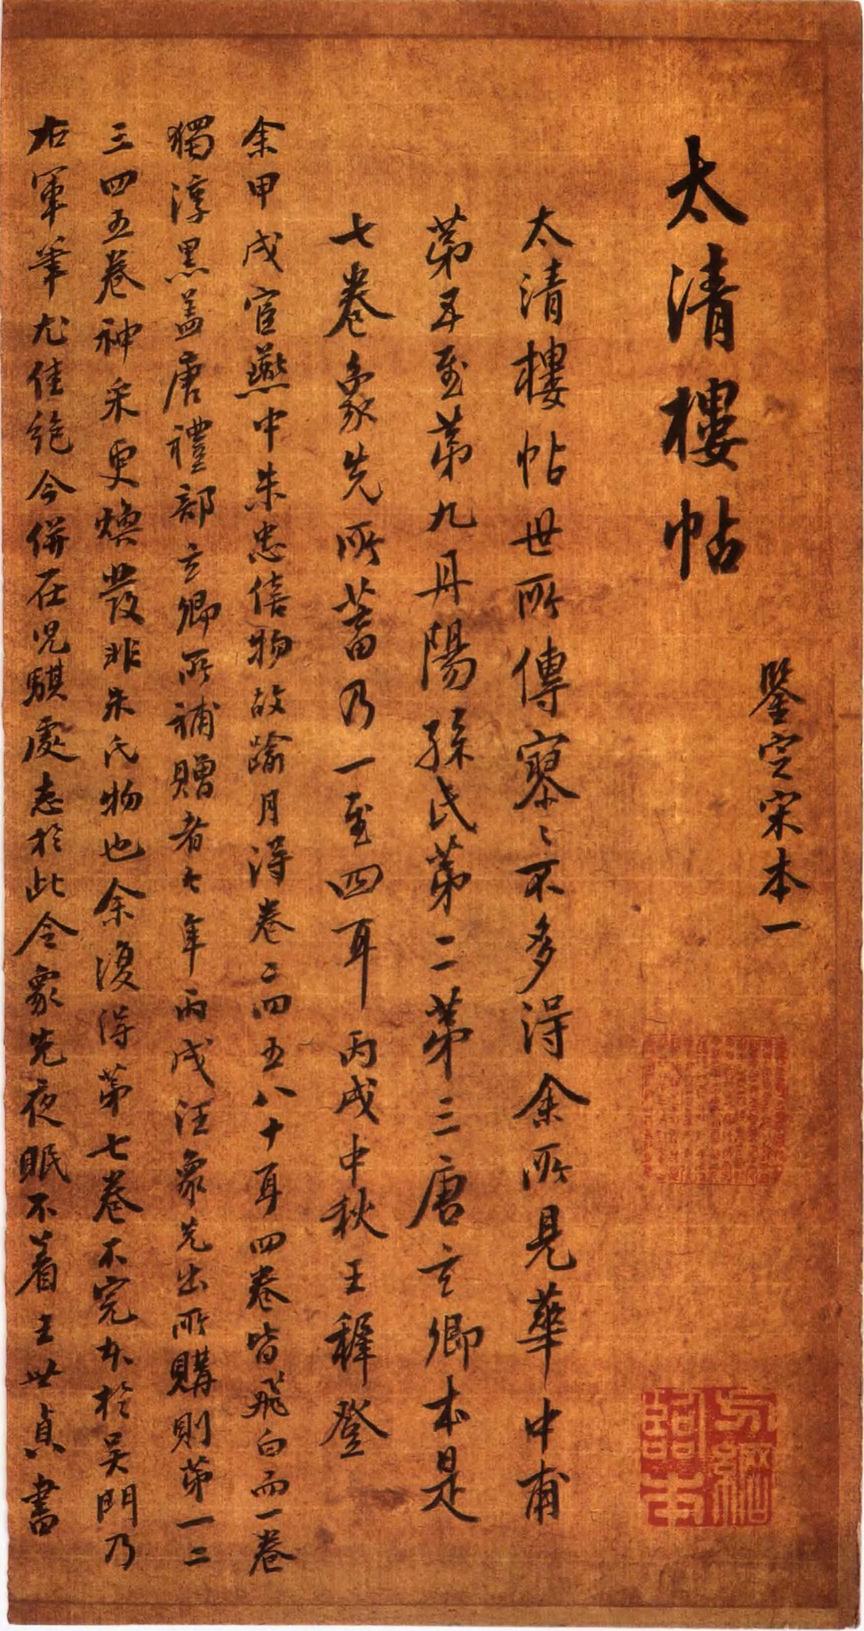 鑒定宋本一
太清樓帖
太清樓帖世所傳寥〻不多得余所見華中甫
第五至第九丹陽孫氏第二第三唐玄卿本是
七卷象先所蓄乃一至四耳丙戌中秋王穉登
余甲戌官燕中朱忠僖物故踰月得卷二四五八十耳四卷皆飛白而一卷
獨淳黑蓋唐禮部玄卿所補贈者七年丙戌汪象先出所購則第一二
三四五卷神采更煥發非朱氏物也余復得第七卷不完本於吳門乃
右軍筆尤佳絕今併在兒騏處志於此令象先夜眠不着王世貞書